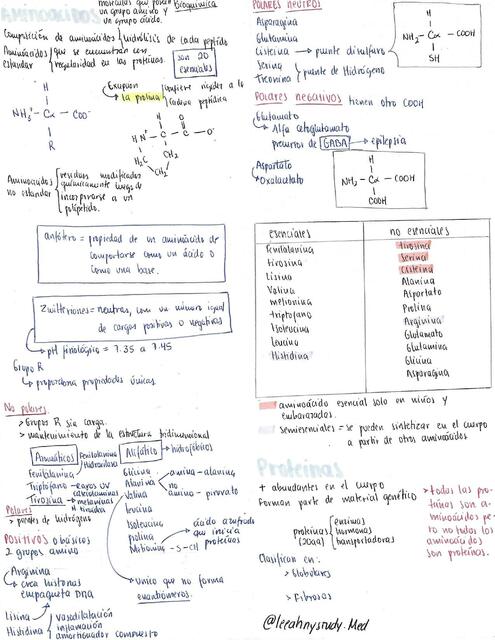 moléculas que poseen
un grupo amino y
un grupo ácido.
Bioquímica
Aminoácidos
Composición de aminoácidos hidrólisis de cada péptido
Aminoácidos estandar
que se encuentran con
regularidad en las proteínas.
son 20
esenciales
Excepción
la prolina
confiere rigidez a la
cadena peptídica
H
NH3+ - Cα - COO-
R
H O
HN+ - C - C - O-
H2C CH2
CH2
Aminoácidos
no estandar
residuos modificados
químicamente luego de
incorporarse a un
polipéptido.
anfótero = propiedad de un aminoácido de
comportarse como un ácido o
como una base.
Zwitteriones = neutras, con un número igual
de cargas positivas o negativas
pH fisiológico = 7.35 a 7.45
Grupo R
proporciona propiedades únicas.
No polares.
> Grupos R sin carga.
> mantenimiento de la estructura tridimensional
Aromáticos
Fenilalanina
Triptofano
Tirosina
Alifático → hidrofóbicos
Glicina
Alanina
Valina
Leucina
Isoleucina
prolina
Metionina - S - CH
amino - alanina
no
amino - piruvato
ácido azufrado
que inicia
proteínas
Único que no forma
enantiómeros.
Polares
> puentes de hidrógeno
Positivos o básicos
2 grupos amino
Arginina
crea histonas
empaqueta DNA
Lisina
Histidina
vasodilatación
inflamación
amortiguador compuesto
Polares neutros
Asparagina
Glutamina
Cisteina → puente disulfuro
Serina
Treonina
puente de Hidrógeno
H
NH2 - Cα - COOH
SH
Polares negativos tienen otro COOH
Glutamato
Alfa cetoglutamato
precursor de GABA → epilepsia
Aspartato
Oxalacetato
H
NH2 - Cα - COOH
COOH
esenciales no esenciales
Fenilalanina Tirosina
tirosina Serina
Lisina Cisteina
Valina Alanina
metionina Aspartato
triptofano Prolina
Isoleucina Arginina
Leucina Glutamato
Histidina Glutamina
Glicina
Asparagina
aminoácido esencial solo en niños y
embarazadas.
semiesenciales = se pueden sintetizar en el cuerpo
a partir de otros aminoácidos
Proteínas
+ abundantes en el cuerpo
Forman parte de material genético
proteínas
(20aa)
enzimas
hormonas
transportadoras
> todas las pro-
teínas son a-
minoácidos pe-
ro no todos los
aminoácidos
son proteínas.
Clasifican en:
> Globulares
> Fibrosas
@leeahnystudy.Med